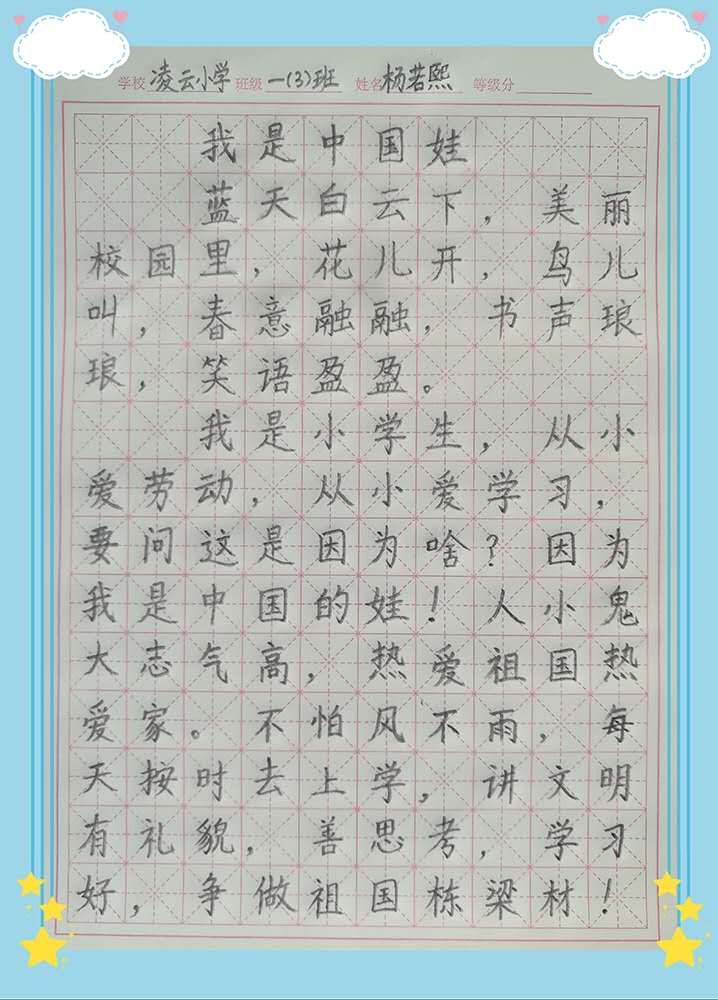 学校 凌云小学 班级 一(3)班 姓名 杨若熙 等级分
我是中国娃
蓝天白云下，美丽
校园里，花儿开，鸟儿
叫，春意融融，书声琅
琅，笑语盈盈。
我是小学生，从小
爱劳动，从小爱学习，
要问这是因为啥？因为
我是中国的娃！人小鬼
大志气高，热爱祖国热
爱家。不怕风不雨，每
天按时去上学，讲文明
有礼貌，善思考，学习
好，争做祖国栋梁材！